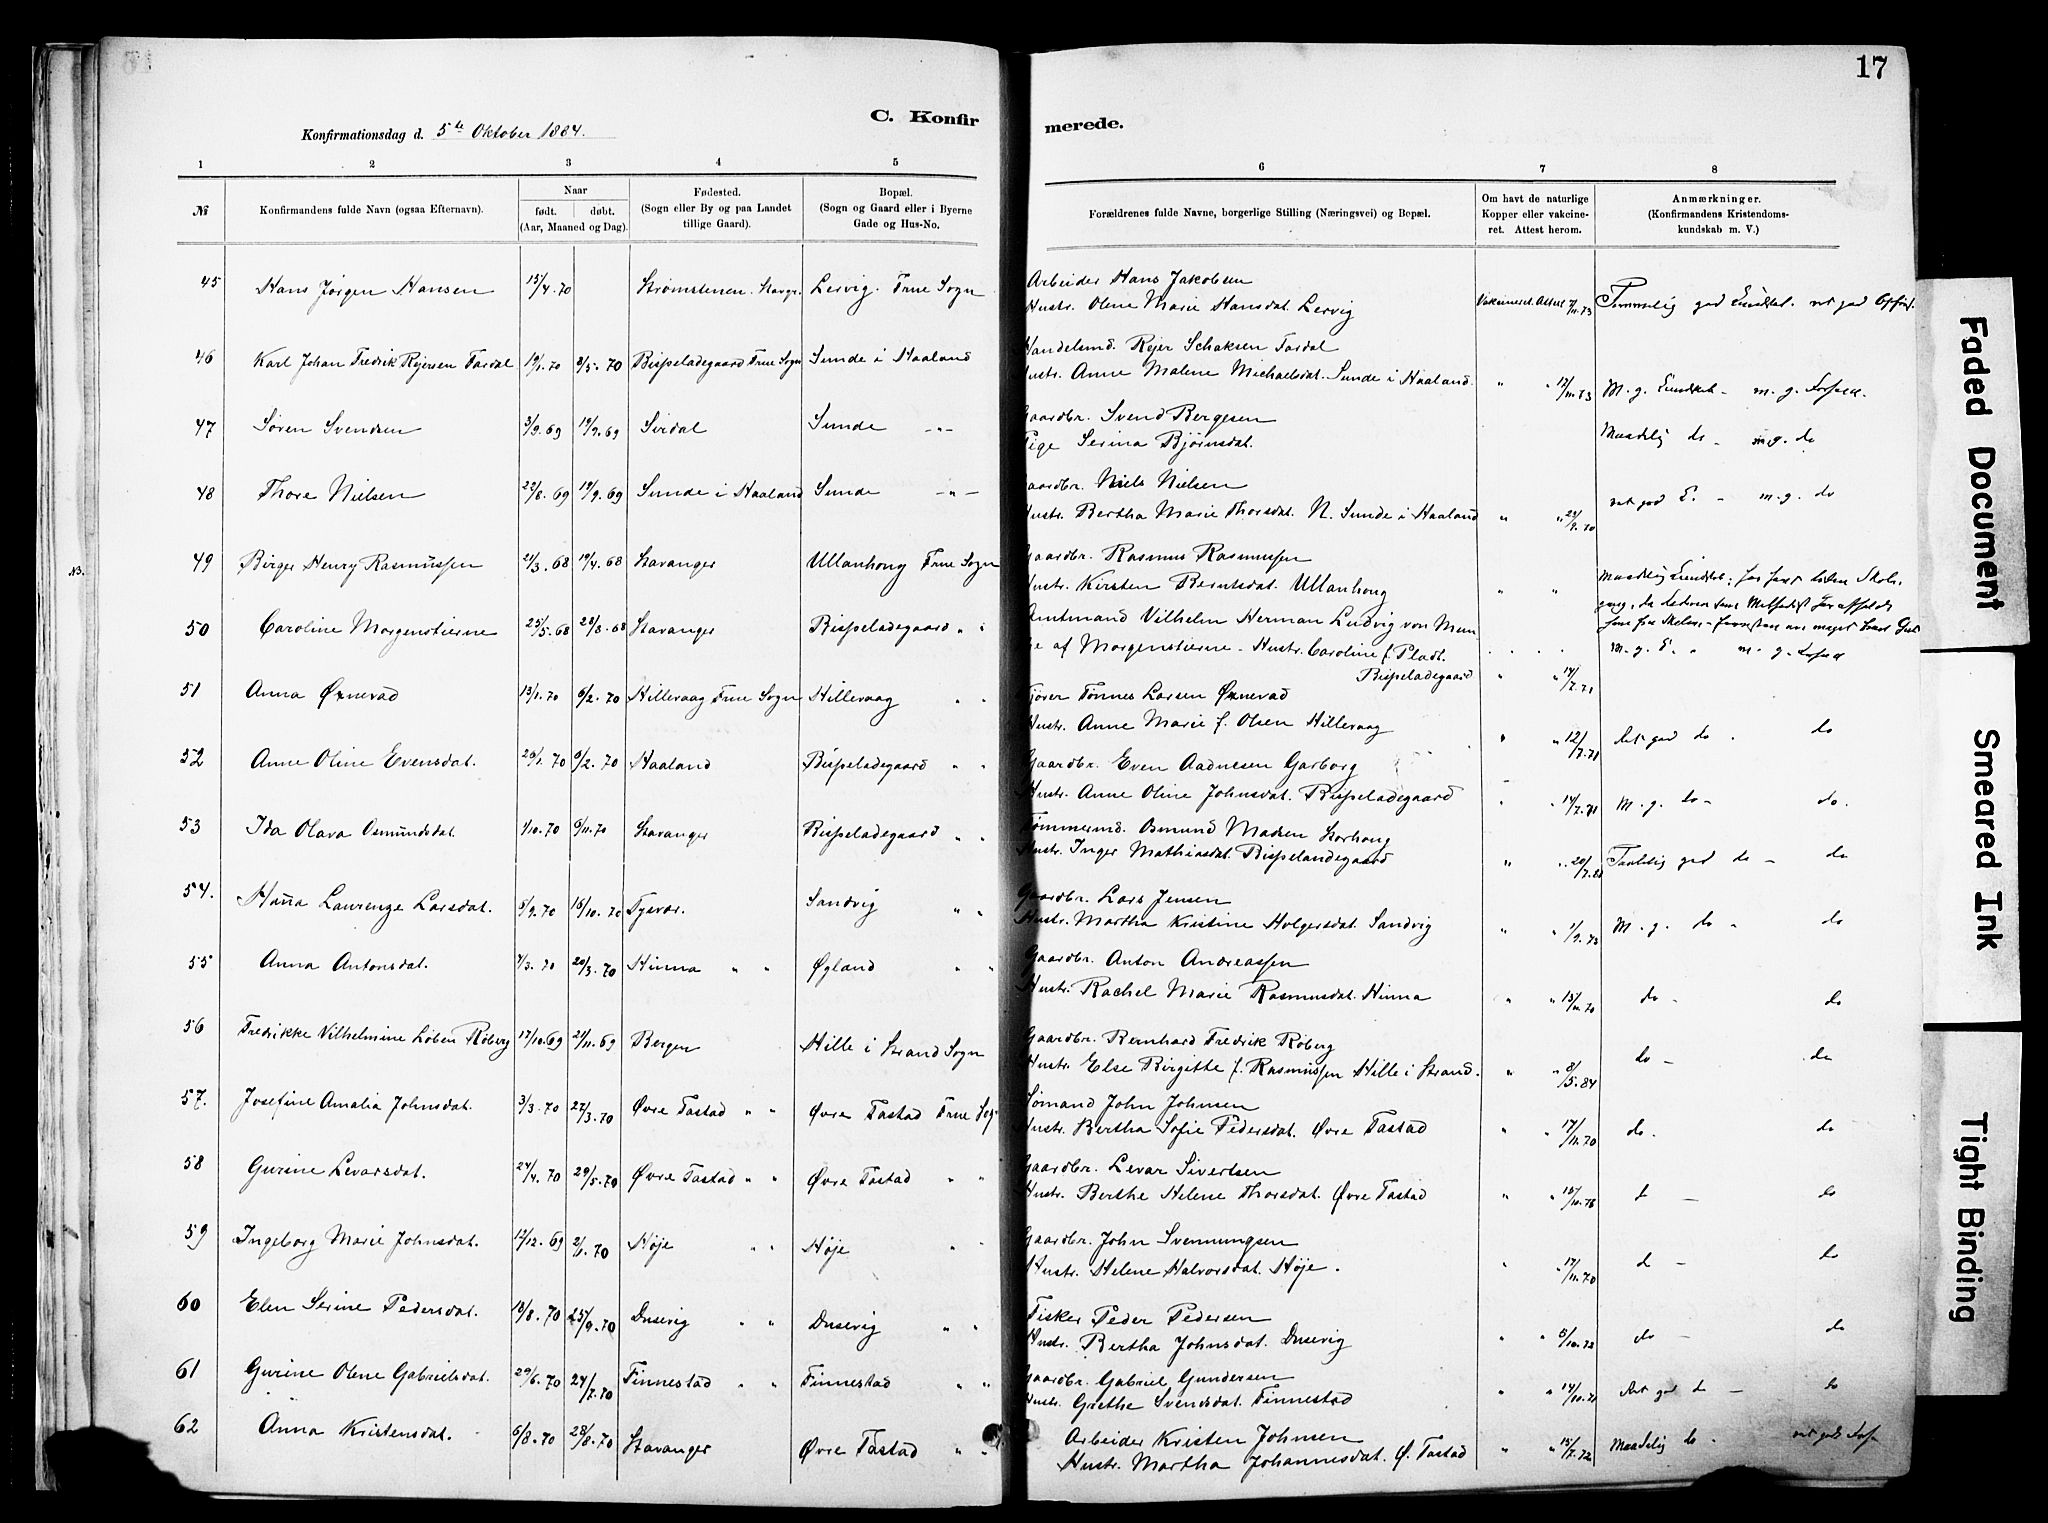 17
C. Konfir merede.
Konfirmationsdag d. 5te Oktober 1884.
1 2 3 4 5 6 7 8
№
Konfirmandens fulde Navn (ogsaa Efternavn).
Naar
født. døbt.
(Aar, Maaned og Dag).
Fødested.
(Sogn eller By og paa Landet
tillige Gaard).
Bopæl.
(Sogn og Gaard eller i Byerne
Gade og Hus-No.
Forældrenes fulde Navne, borgerlige Stilling (Næringsvei) og Bopæl.
Om havt de naturlige
Kopper eller vakcine-
ret. Attest herom.
Anmærkninger.
(Konfirmandens Kristendoms-
kundskab m. V.)
45 Hans Jørgen Hansen 15/4.70 Strømstenen. Stavgr. Lervig. Frue Sogn
Arbeider Hans Jakobsen
Hustr. Olene Marie Hansdat. Lervig Vakcineret. Attest 7/11.73
46 Karl Johan Fredrik Rejersen Tardal 19/1.70 8/5.70 Bispeladegaard Frue Sogn Sunde i Haaland
Handelsmd. Rejer Schaksen Tardal
Hustr. Anne Malene Michaelsdat. Sunde i Haaland. " " M. g. Kundskab - m. g. Forhold.
47 Søren Svendsen 3/9.69 19/9.69 Sirdal Sunde -"-
Gaardbr. Svend Bergesen
Pige Serina Bjørnsdat. Maadelig do - m.g. do
48 Thore Nielsen 22/8.69 19/9.69 Sunde i Haaland Sunde -"-
Gaardbr. Niels Nielsen
Hustr. Bertha Marie Thorsdat. N. Sunde i Haaland " " 24/9.70 m. g. do
NB. 49 Birger Henry Rasmussen 21/3.68 19/4.68 Stavanger Ullanhoug Frue Sogn
Gaardbr. Rasmus Rasmussen
Hustr. Kirsten Berntsdat. Ullanhoug " "
50 Caroline Morgenstierne 25/5.68 28/8.68 Stavanger Bispeladegaard " "
Amtmand Vilhelm Herman Ludvig von Mun
the af Morgenstierne - Hustr. Caroline f. Pladt.
Bispeladegaard " " 14/7.71 m. g. K. " m. g. Forhold
51 Anna Øxnevad 13/1.70 6/2.70 Hillevaag Frue Sogn Hillevaag " "
Kjører Tønnes Larsen Øxnevad
Hustr. Anne Marie f. Olsen Hillevaag " " 12/7.71 Ret god do - do
52 Anne Oline Evensdat. 20/1.70 6/2.70 Haaland Bispeladegaard " "
Gaardbr. Even Aadnesen Garborg
Hustr. Anne Oline Johnsdat. Bispeladegaard " " 14/7.71 M. g. do - do.
53 Ida Olava Osmundsdat. 1/10.70 6/11.70 Stavanger Bispeladegaard " "
Tømmermd. Osmund Madsen Storhoug
Hustr. Inger Mathiasdat. Bispelandegaard " " Taalelig god do - do
54. Hanna Laurenze Larsdat. 5/9.70 16/10.70 Tysvær. Sandvig " "
Gaardbr. Lars Jensen
Hustr. Martha Kristine Holgersdat. Sandvig " " 1/9.73 M. g. do - do
55 Anna Antonsdat. 7/3.70 20/3.70 Hinna " " Øgland " "
Gaardbr. Anton Andreassen
Hustr. Rachel Marie Rasmusdat. Hinna " " 15/11.70 do - do
56 Fredrikke Vilhelmine Løben Røberg 17/10.69 21/11.69 Bergen Hille i Strand Sogn
Gaardbr. Bernhard Fredrik Røberg
Hustr. Else Birgitte f. Rasmussen Hille i Strand. " " 8/5.84 do - do
57. Josefine Amalia Johnsdat. 3/3.70 27/3.70 Øvre Tastad " " Øvre Tastad Frue Sog
Sømand John Johnsen
Hustr. Bertha Sofie Pedersdat. Øvre Tastad " " 17/11.70 do. do
58 Gurine Levarsdat. 24/4.70 29/5.70 Øvre Tastad " " Øvre Tastad " "
Gaardbr. Levar Sivertsen
Hustr. Berthe Helene Thorsdat. Øvre Tastad " " 15/10.76 d - do
59 Ingeborg Marie Johnsdat. 12/12.69 2/1.70 Høje " " Høje " "
Gaardbr. John Svennungsen
Hustr. Helene Halvorsdat. Høje. " " 17/11.70 d - do
60 Elen Serine Pedersdat. 18/8.70 25/9.70 Dusevig " " Dusevig " "
Fisker Peder Pedersen
Hustr. Bertha Johnsdat. Dusevig " " 5/10.72 do - do
61 Gurine Olene Gabrielsdat. 29/6.70 24/7.70 Finnestad " " Finnestad " "
Gaardbr. Gabriel Gundersen
Hustr. Grethe Svendsdat. Finnestad " " 14/10.71 Ret god d - do
62 Anna Kristensdat. 6/8.70 28/8.70 Stavanger Øvre Tastad " "
Arbeider Kristen Johnsen
Hustr. Martha Johannesdat. Ø. Tastad " " 15/7.72 Maadelig do -
Faded Document
Smeared Ink
Tight Binding